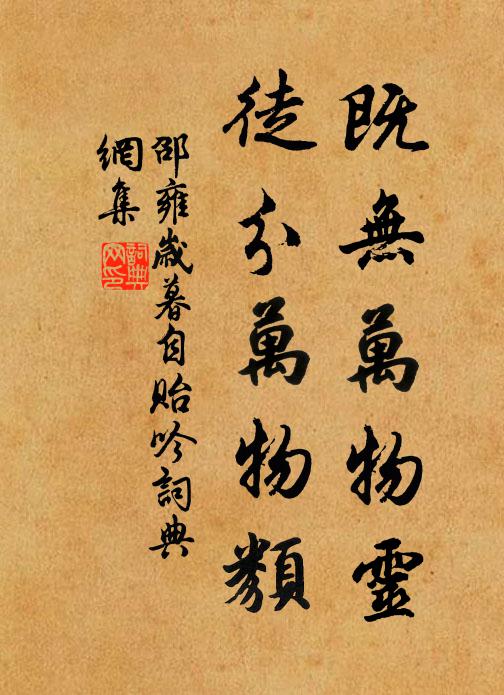 既無萬物靈
徒分萬物類
邵雍歲暮自貽吟詞典
網集
詞典
网印